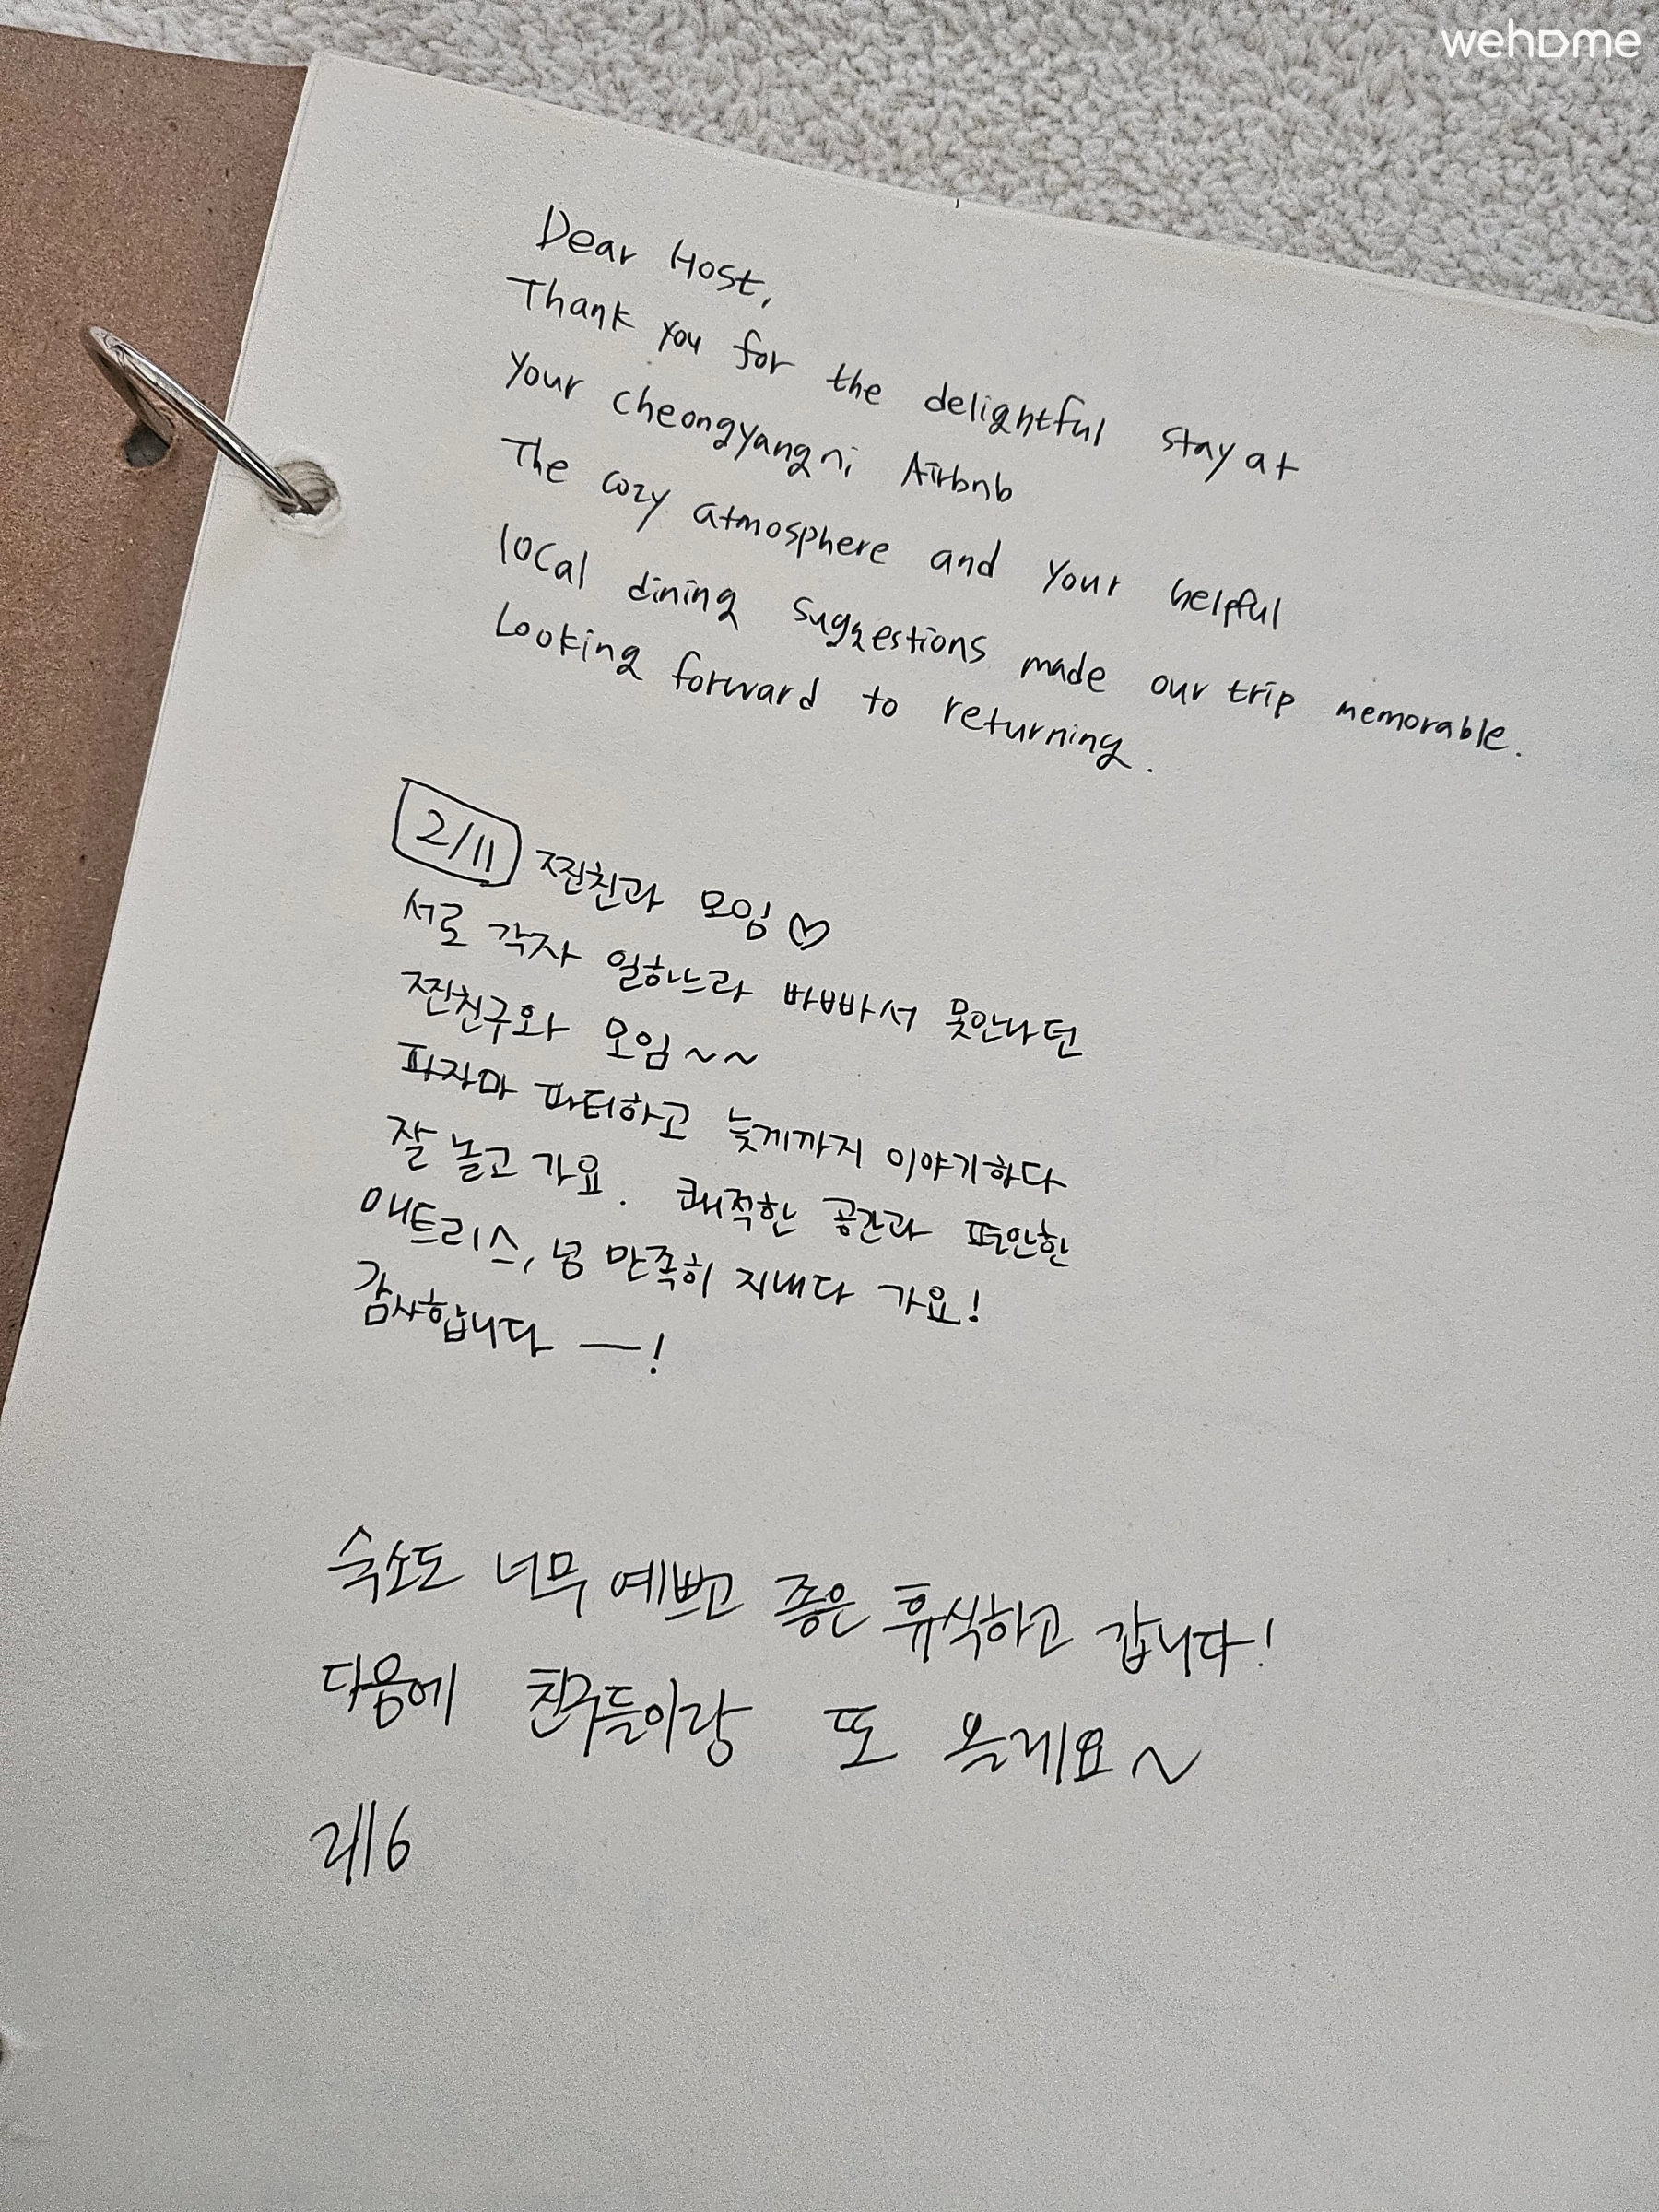 wehome
Dear Host,
Thank you for the delightful stay at
your cheongyangni Airbnb
The cozy atmosphere and your helpful
local dining suggestions made our trip memorable.
Looking forward to returning.
2/11 찐친과 모임♡
서로 각자 일하느라 바빠서 못만나던
찐친구와 모임~~
파자마 파티하고 늦게까지 이야기하다
잘 놀고 가요. 쾌적한 공간과 편안한
매트리스, 넘 만족히 지내다 가요!
감사합니다 —!
숙소도 너무 예쁘고 좋은 휴식하고 갑니다!
다음에 친구들이랑 또 올게요~